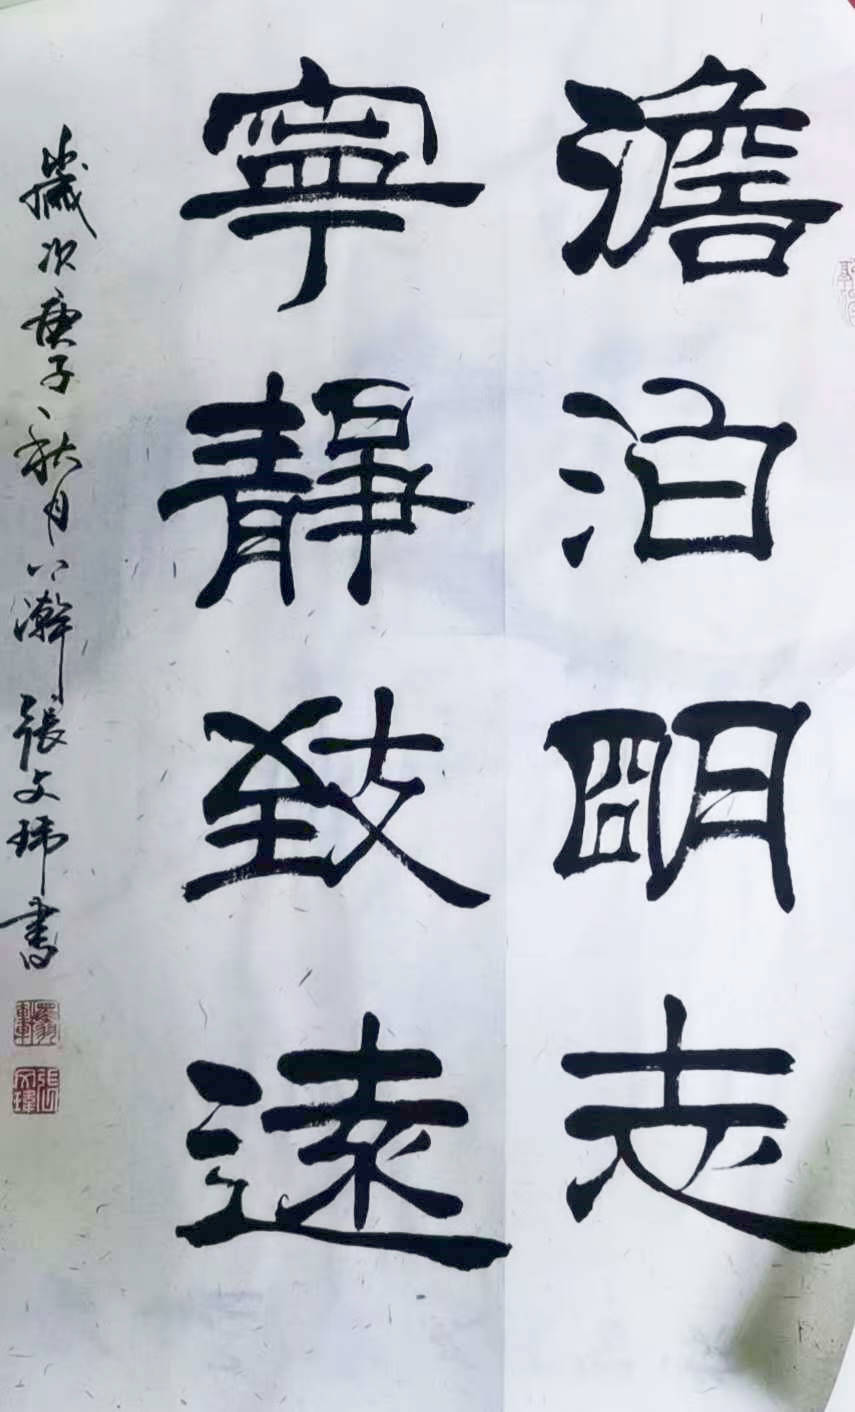 澹泊明志
寧靜致遠
歲次庚子秋月 瀚 張文瑋書
張文瑋